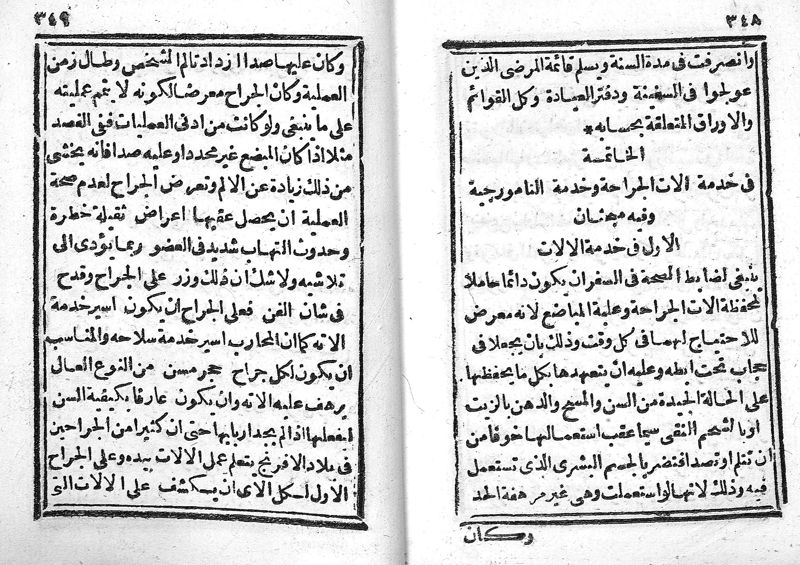 ٣٤٨
وانصرفت فى مدة السنة ويسلم قائمة المرضى الذين
عولجوا فى السفينة ودفتر العيادة وكل القوائم
والاوراق المتعلقة بحسابه *
الخاتمة
فى خدمة الات الجراحة وخدمة النامورجية
وفيه مبحثان
الاول فى خدمة الالات
ينبغى لضابط الصحة فى السفر ان يكون دائما حاملا
لمحفظة الات الجراحة وعلبة المباضع لانه معرض
للاحتياج لهما فى كل وقت وذلك بان يجعلا فى
حجاب تحت ابطه وعليه ان يتعهدها بكل ما يحفظها
على الحالة الجيدة من السن والمسح والدهن بالزيت
او بالشحم النقى سيما عقب استعمالها خوفا من
ان تنثلم او تصدا فتضر بالجسم البشرى الذى تستعمل
فيه وذلك لانها لو استعملت وهى غير مرهفة الحد
وكان
٣٤٩
وكان عليها صدا ازداد تالم الشخص وطال زمن
العملية وكان الجراح معرضا لكونه لا يتمم عمليته
على ما ينبغى ولو كانت من ادنى العمليات ففى الفصد
مثلا اذا كان المبضع غير محدد او عليه صدا فانه يخشى
من ذلك زيادة عن الالم وتعرض الجراح لعدم صحة
العملية ان يحصل عقبها اعراض ثقيلة خطرة
وحدوث التهاب شديد فى العضو ربما يؤدى الى
تلاشيه ولا شك ان ذلك وزر على الجراح وقدح
فى شان الفن فعلى الجراح ان يكون اسير خدمة
الاته كما ان المحارب اسير خدمة سلاحه والمناسب
ان يكون لكل جراح حجر مسن من النوع العال
يرهف عليه الاته وان يكون عارفا بكيفية السن
ليفعلها اذا لم يجد اربابها حتى ان كثيرا من الجراحين
فى بلاد الافرنج يتعلم عمل الالات بيده وعلى الجراح
الاول لكل الاى ان يستكشف على الالات التى